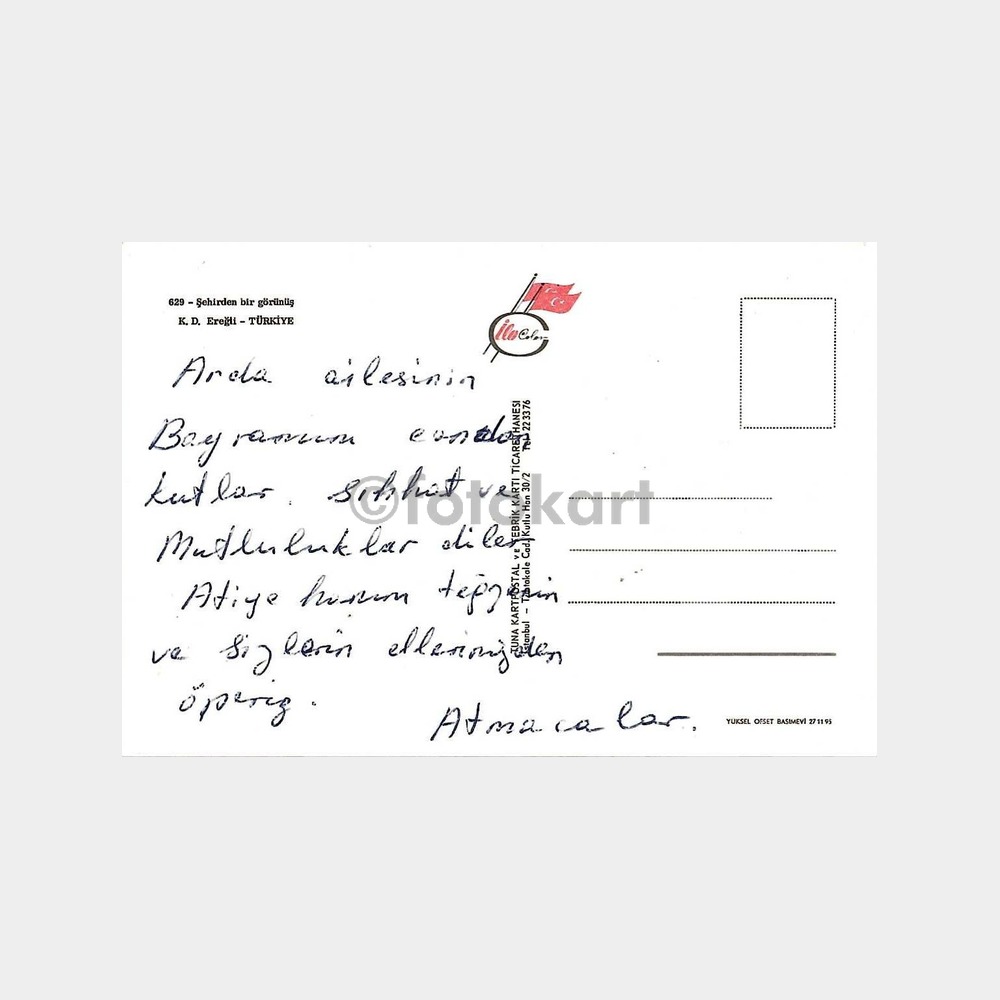 629 – Şehirden bir görünüş
K. D. Ereğli – TÜRKİYE
İlo Color
Arda ailesinin
Bayramını candan
kutlar. sıhhat ve
Mutluluklar diler
Atiye hanım teyzenin
ve sizlerin ellerinizden
öperiz.
Atmacalar.
TUNA KARTPOSTAL ve TEBRİK KARTI TİCARETHANESİ
İstanbul – Tahtakale Cad. Kutlu Han 30/2 Tel: 22 33 76
©fotokart
YÜKSEL OFSET BASIMEVİ 27 11 95